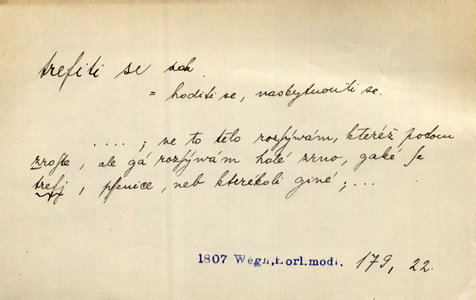 trefiti se dok.
= hoditi se, naskytnouti se.
....; ne to tělo rozsýwám, kteréž potom
zroste, ale gá rozsýwám holé zrno, gaké se
trefj, pšenice, neb kterékoli giné;...
1807 Wegn,Korl.modl. 179, 22.